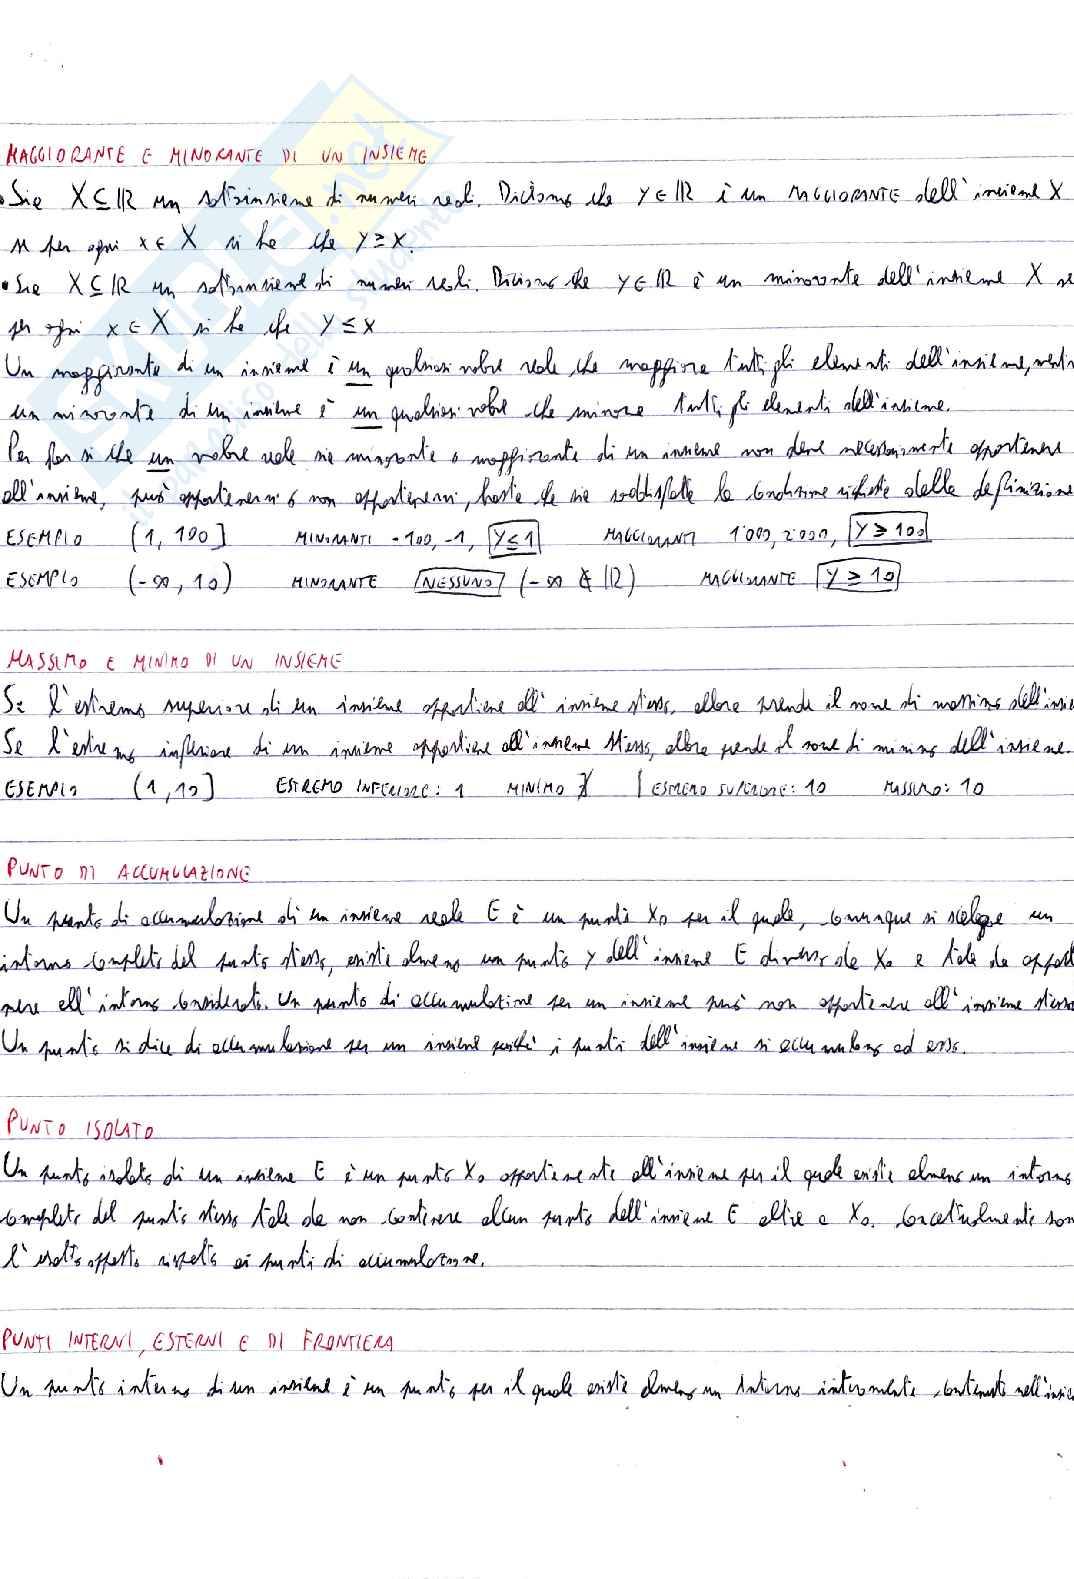 MAGGIORANTE E MINORANTE DI UN INSIEME
• Sia X ⊆ ℝ un sottoinsieme di numeri reali. Diciamo che y ∈ ℝ è un MAGGIORANTE dell'insieme X
se per ogni x ∈ X si ha che y ≥ x.
• Sia X ⊆ ℝ un sottoinsieme di numeri reali. Diciamo che y ∈ ℝ è un minorante dell'insieme X se
per ogni x ∈ X si ha che y ≤ x
Un maggiorante di un insieme è un qualsiasi valore reale che maggiora tutti gli elementi dell'insieme, mentre
un minorante di un insieme è un qualsiasi valore che minora tutti gli elementi dell'insieme.
Per far si che un valore reale sia minorante o maggiorante di un insieme non deve necessariamente appartenere
all'insieme, può appartenervi o non appartenervi, basta che sia soddisfatta la condizione richiesta dalla definizione
ESEMPIO (1, 100] MINORANTI -100, -1, y ≤ 1 MAGGIORANTI 1'000, 2'000, y ≥ 100
ESEMPIO (-∞, 10) MINORANTE NESSUNO (-∞ ∉ ℝ) MAGGIORANTE y ≥ 10
MASSIMO E MINIMO DI UN INSIEME
Se l'estremo superiore di un insieme appartiene all'insieme stesso, allora prende il nome di massimo dell'insie
Se l'estremo inferiore di un insieme appartiene all'insieme stesso, allora prende il nome di minimo dell'insieme.
ESEMPIO (1, 10] ESTREMO INFERIORE: 1 MINIMO ∄ | ESTREMO SUPERIORE: 10 MASSIMO: 10
PUNTO DI ACCUMULAZIONE
Un punto di accumulazione di un insieme reale E è un punto x₀ per il quale, comunque si scelga un
intorno completo del punto stesso, esiste almeno un punto y dell'insieme E diverso da x₀ e tale da apparte
nere all'intorno considerato. Un punto di accumulazione per un insieme può non appartenere all'insieme stesso
Un punto si dice di accumulazione per un insieme poiché i punti dell'insieme si accumulano ad esso.
PUNTO ISOLATO
Un punto isolato di un insieme E è un punto x₀ appartenente all'insieme per il quale esiste almeno un intorno
completo del punto stesso tale da non contenere alcun punto dell'insieme E oltre a x₀. Concettualmente son
l'esatto opposto rispetto ai punti di accumulazione.
PUNTI INTERNI, ESTERNI E DI FRONTIERA
Un punto interno di un insieme è un punto per il quale esiste almeno un intorno interamente contenuto nell'insie